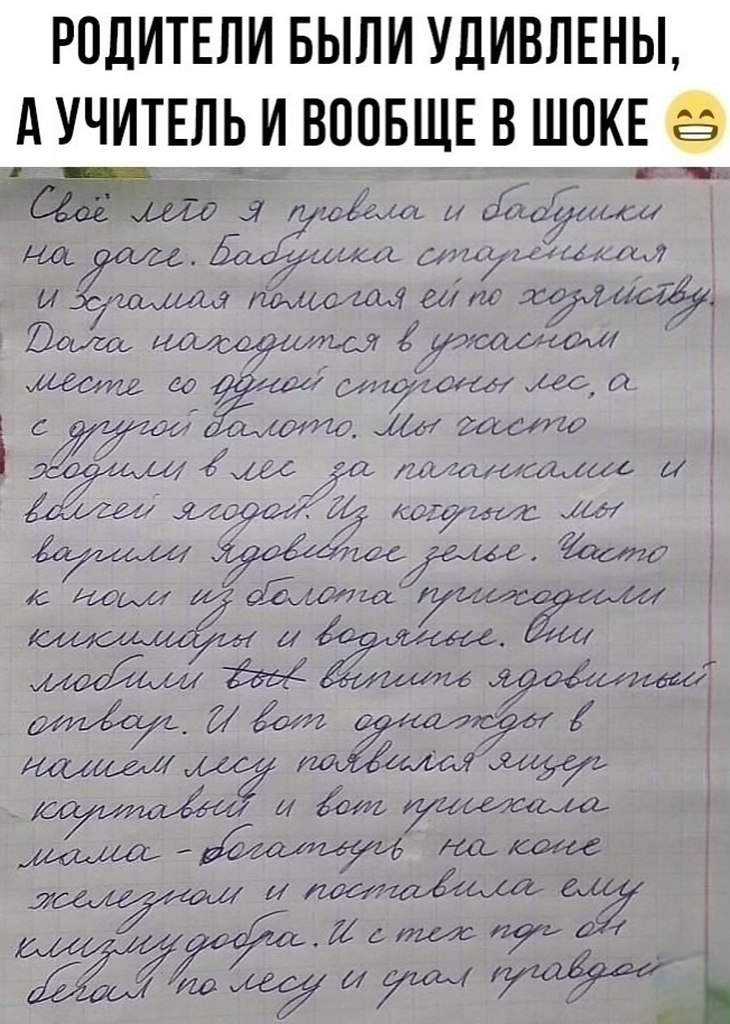 РОДИТЕЛИ БЫЛИ УДИВЛЕНЫ,
А УЧИТЕЛЬ И ВООБЩЕ В ШОКЕ 😁
Своё лето я провела и бабушки
на даче. Бабушка старенькая
и храмая памагая ей по хозяйству.
Дача находится в ужасном
месте со одной стороны лес, а
с другой балото. Мы часто
ходили в лес за паганками и
волчей ягодой. Из которых мы
варили ядовитое зелье. Часто
к нам из болота приходили
кикимары и водяные. Они
любили вып выпить ядовитый
отвар. И вот однажды в
нашем лесу появился ящер
картавый и вот приехала
мама - богатырь на коне
железном и поставила ему
клизму добра. И с тех пор он
бегал по лесу и срал правдой